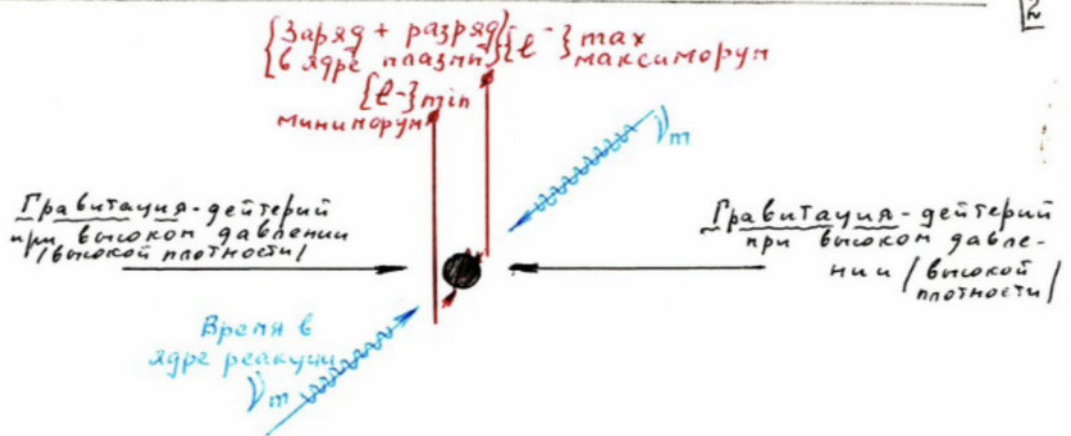 2
{Заряд + разряд}{e⁻}max
{в ядре плазмы} максиморум
{e⁻}min
миниморум
νm
Гравитация-дейтерий
при высоком давлении
/высокой плотности/
Гравитация-дейтерий
при высоком давле-
нии /высокой
плотности/
Время в
ядре реакции
νm